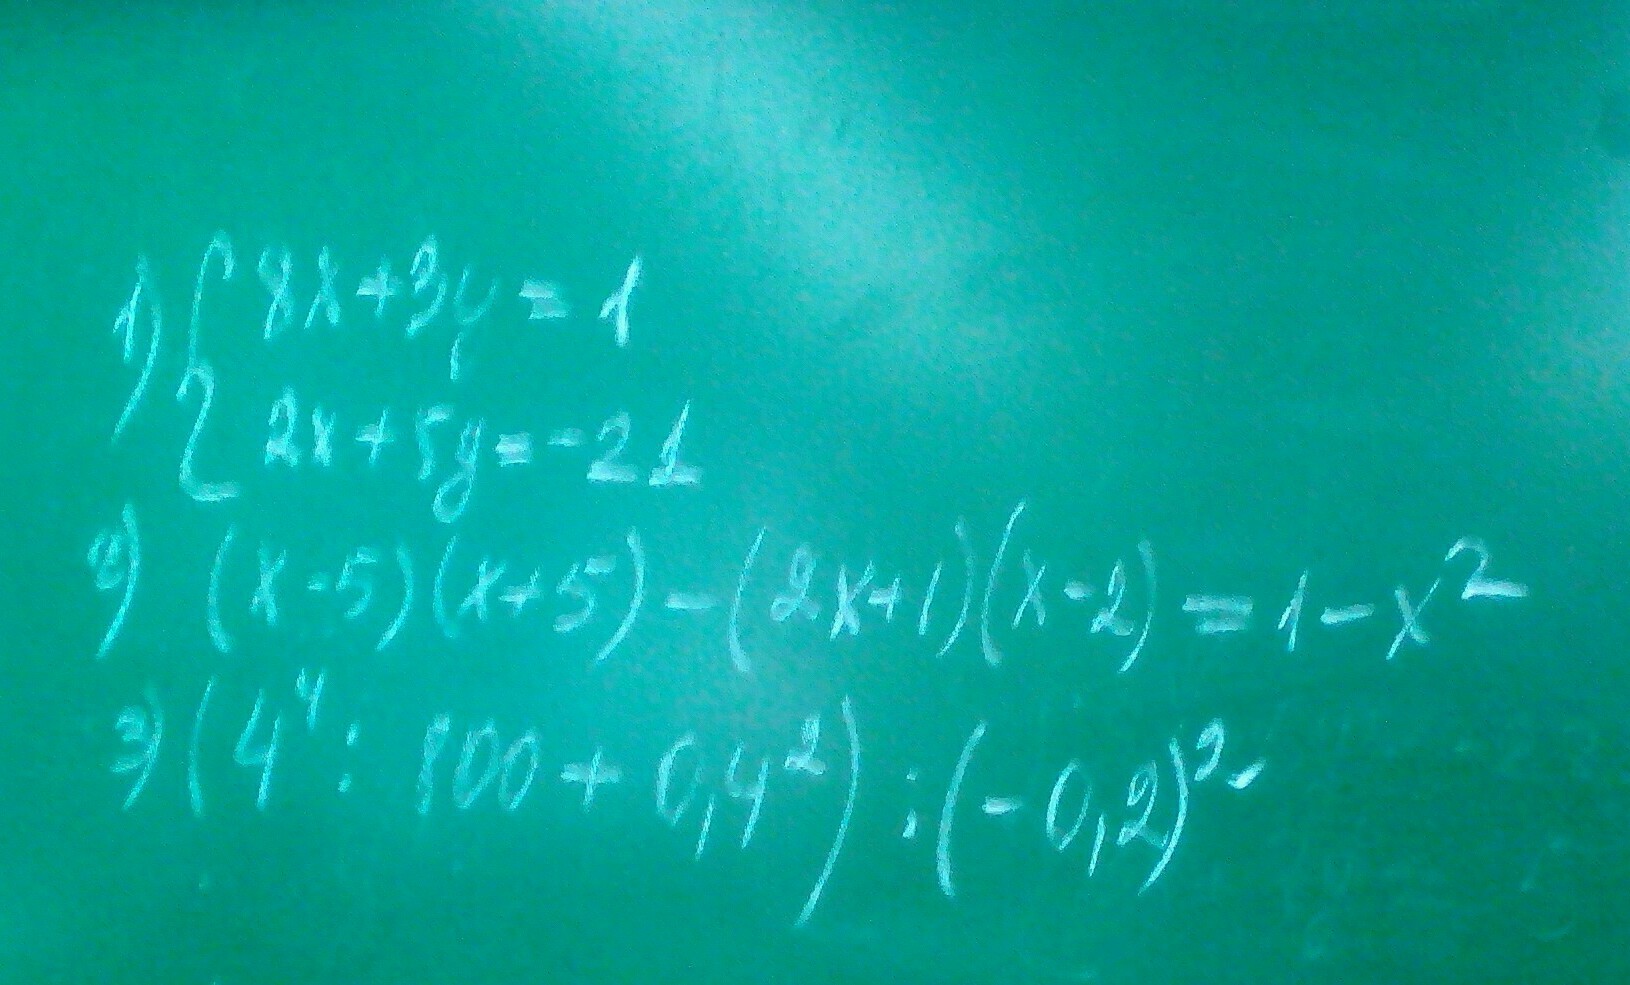 1) { 8x+3y=1
2x+5y=-21
2) (x-5)(x+5)-(2x+1)(x-2)=1-x²
3) (4⁴:800+0,4²):(-0,2)²